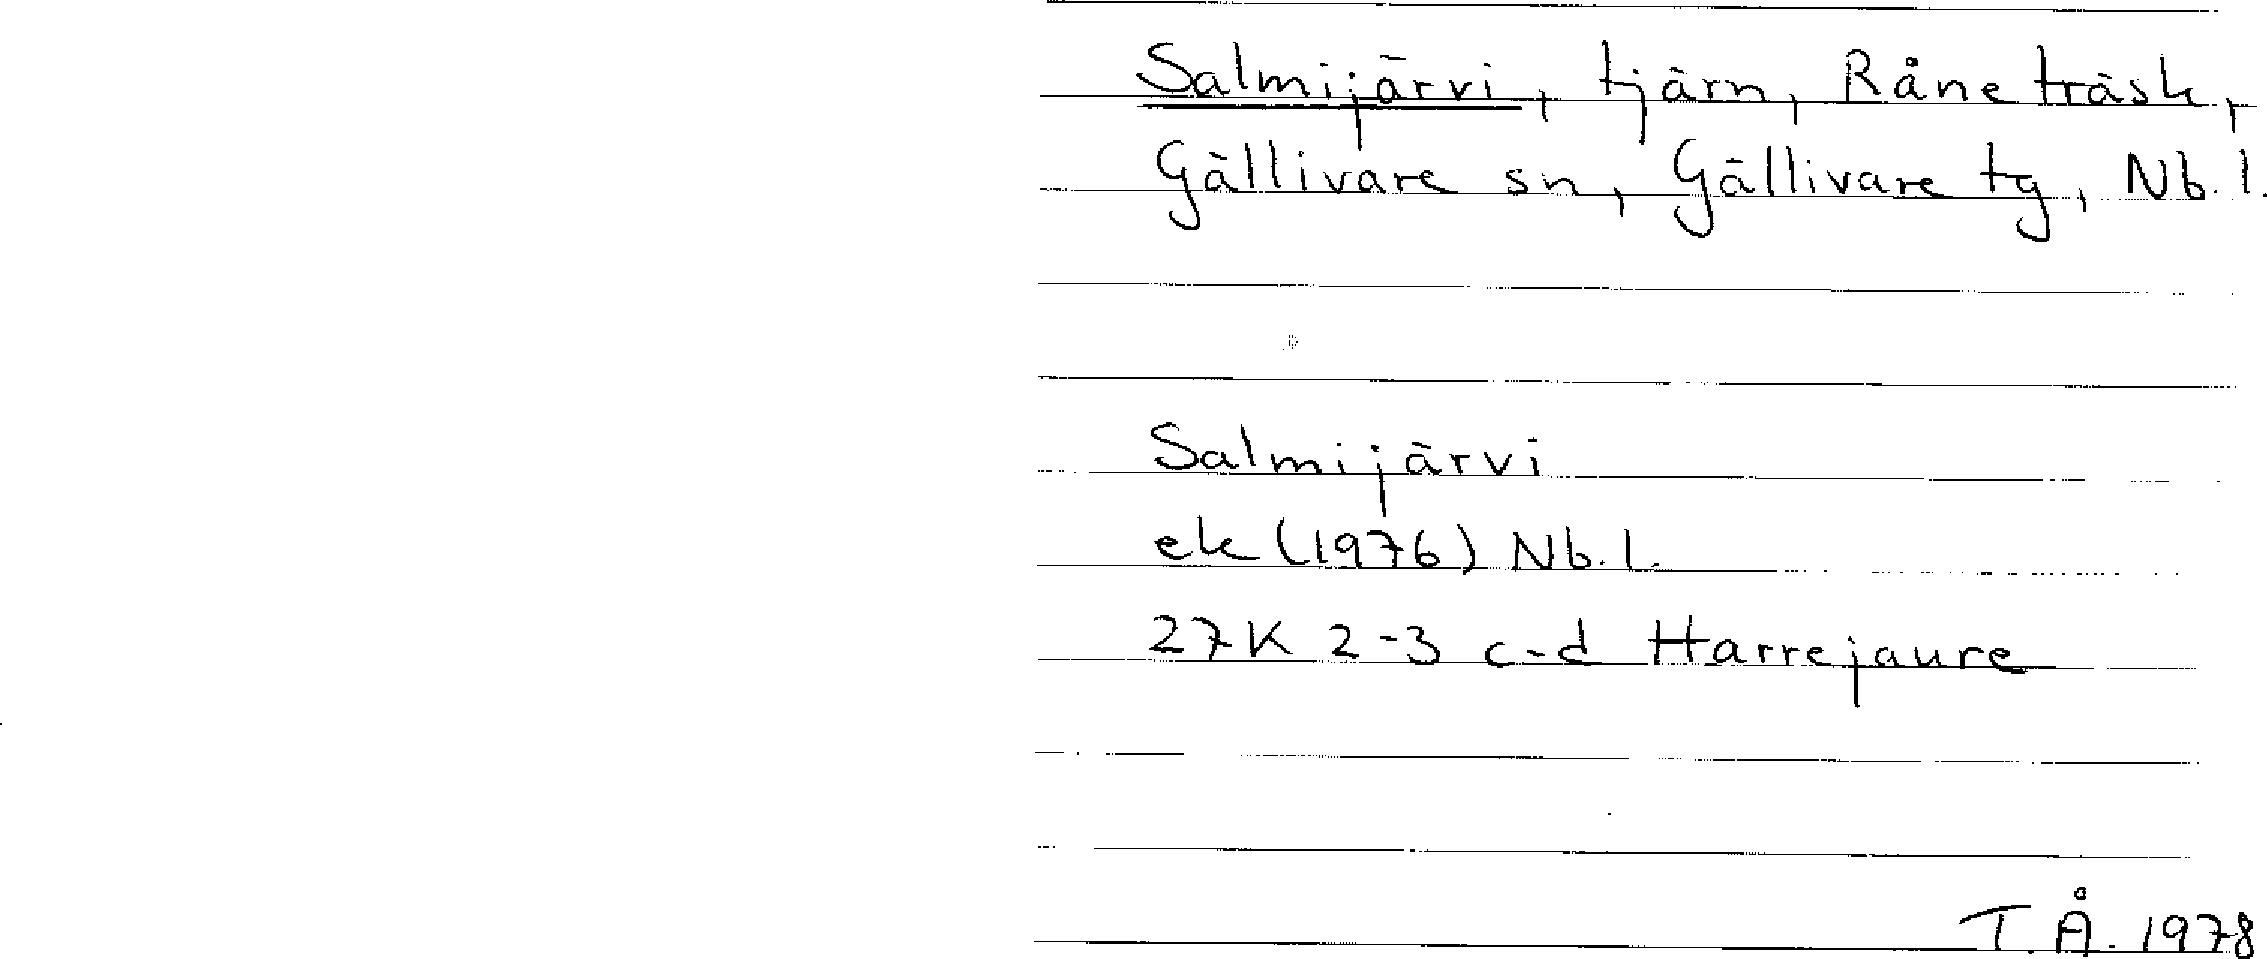 Salmijärvi, tjärn, Råne träsk,
Gällivare sn, Gällivare tg, Nb.l.
Salmijärvi
ek (1976) Nb.l.
27K 2-3 c-d Harrejaure
T.Å. 1978